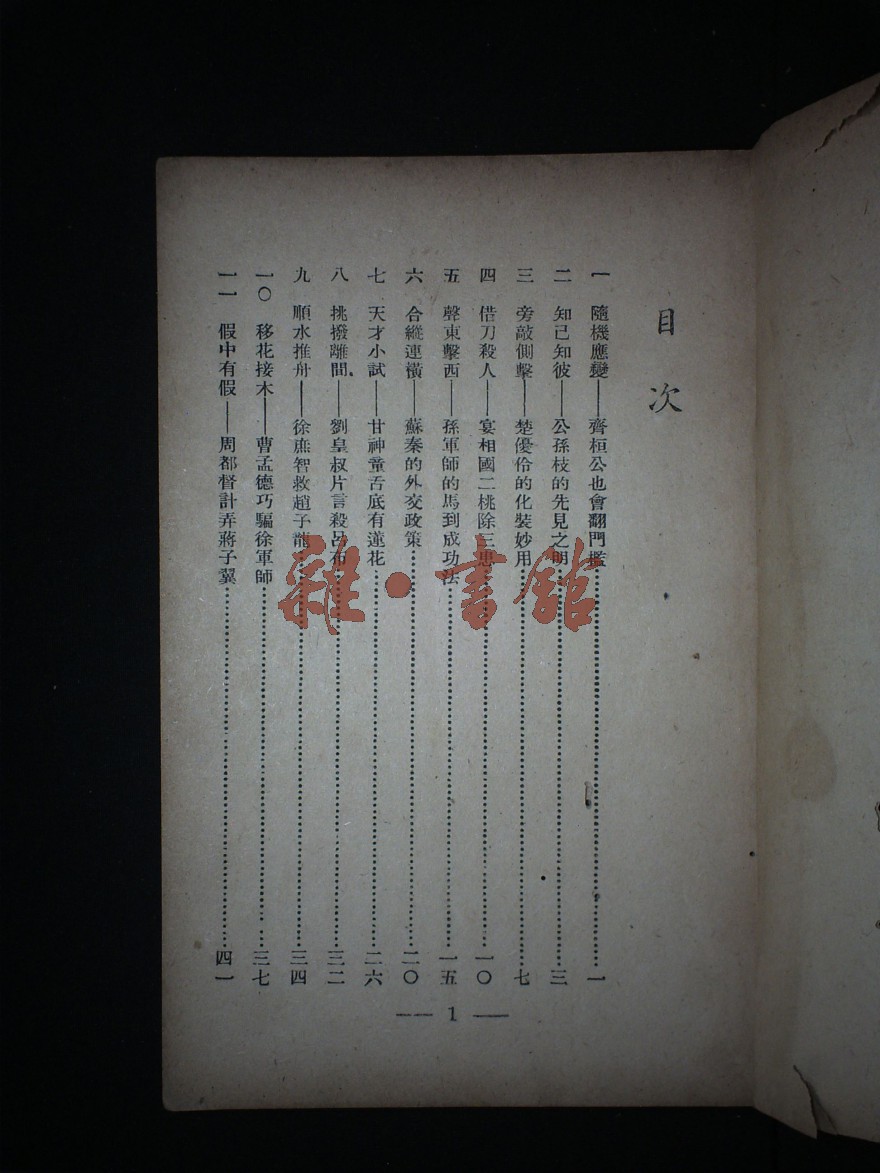 目次
一 隨機應變——齊桓公也會翻門檻……一
二 知己知彼——公孫枝的先見之明……三
三 旁敲側擊——楚優伶的化裝妙用……七
四 借刀殺人——宴相國二桃除三忠……一〇
五 聲東擊西——孫軍師的馬到成功法……一五
六 合縱連橫——蘇秦的外交政策……二〇
七 天才小試——甘神童舌底有蓮花……二六
八 挑撥離間——劉皇叔片言殺呂布……三二
九 順水推舟——徐庶智救趙子龍……三四
一〇 移花接木——曹孟德巧騙徐軍師……三七
一一 假中有假——周都督計弄蔣子翼……四一
— 1 —
雜·書館